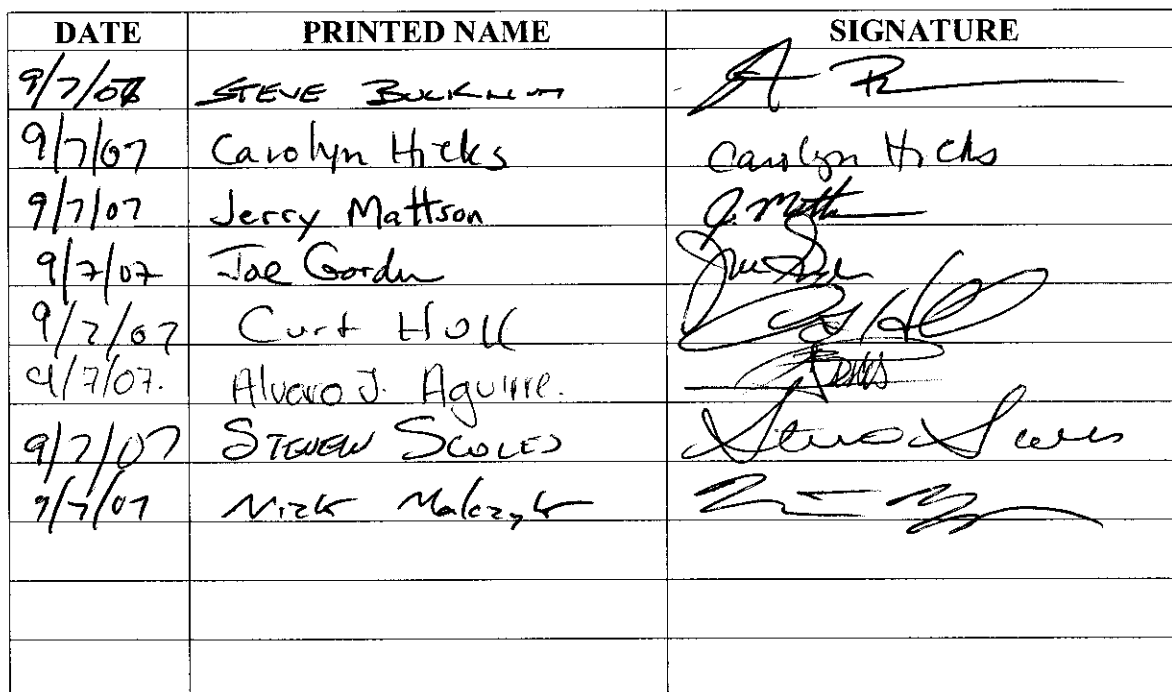 DATE PRINTED NAME SIGNATURE
9/7/07 STEVE
9/7/07 Carolyn Hicks Carolyn Hicks
9/7/07 Jerry Mattson J. Matt
9/7/07 Joe Gordon
9/7/07 Curt Holl
9/7/07. Alvaro J. Aguirre.
9/7/07 STEVEN SCOLES Steven Scoles
9/7/07 Nick Malczyk